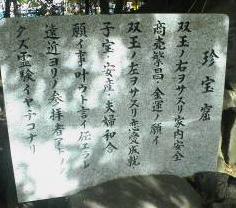 珍宝窟
双玉ノ右ヲサスリ家内安全
商売繁昌・金運ノ願イ
双玉ノ左ヲサスリ恋愛成就
子宝・安産・夫婦和合
願イ事叶ウト言イ伝エラレ
遠近ヨリノ参拝者
クス霊験イヤチコナリ